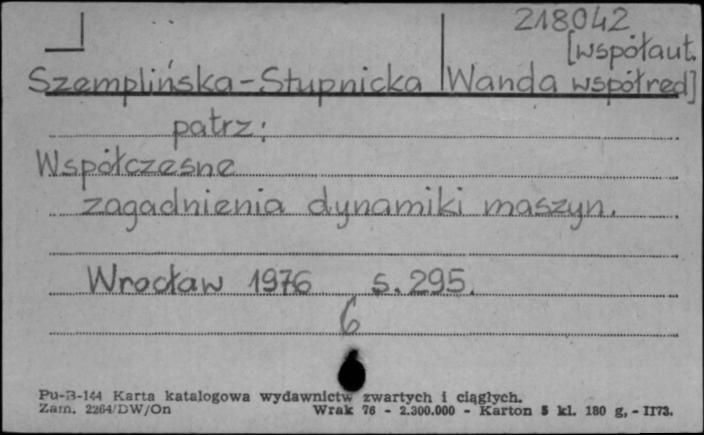 218042
[współaut.
Szemplińska-Stupnicka Wanda współred]
patrz:
Współczesne
zagadnienia dynamiki maszyn.
Wrocław 1976 s. 295.
6
Pu-B-144 Karta katalogowa wydawnictw zwartych i ciągłych.
Zam. 2264/DW/On Wrak 76 - 2.300.000 - Karton 5 kl. 180 g, - II73.